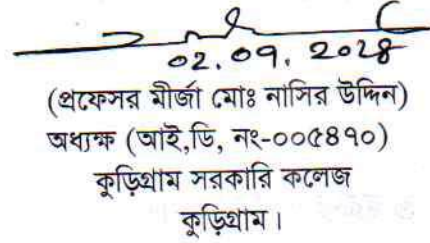 02.09.2024
(প্রফেসর মীর্জা মোঃ নাসির উদ্দিন)
অধ্যক্ষ (আই,ডি, নং-০০৫৪১০)
কুড়িগ্রাম সরকারি কলেজ
কুড়িগ্রাম।